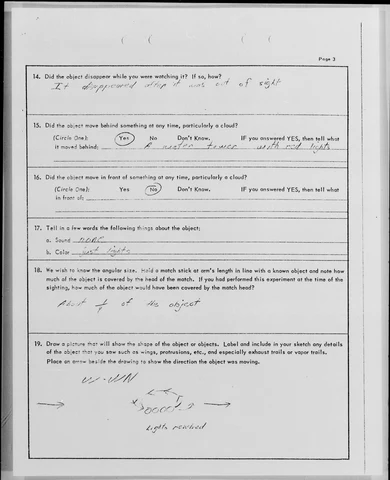 Page 3
14. Did the object disappear while you were watching it? If so, how?
It disappeared after it was out of sight
15. Did the object move behind something at any time, particularly a cloud?
(Circle One): Yes No Don't Know. IF you answered YES, then tell what
it moved behind: A water tower with red lights
16. Did the object move in front of something at any time, particularly a cloud?
(Circle One): Yes No Don't Know. IF you answered YES, then tell what
in front of:
17. Tell in a few words the following things about the object:
a. Sound none
b. Color just lights
18. We wish to know the angular size. Hold a match stick at arm's length in line with a known object and note how
much of the object is covered by the head of the match. If you had performed this experiment at the time of the
sighting, how much of the object would have been covered by the match head?
About of the object
19. Draw a picture that will show the shape of the object or objects. Label and include in your sketch any details
of the object that you saw such as wings, protrusions, etc., and especially exhaust trails or vapor trails.
Place an arrow beside the drawing to show the direction the object was moving.
lights